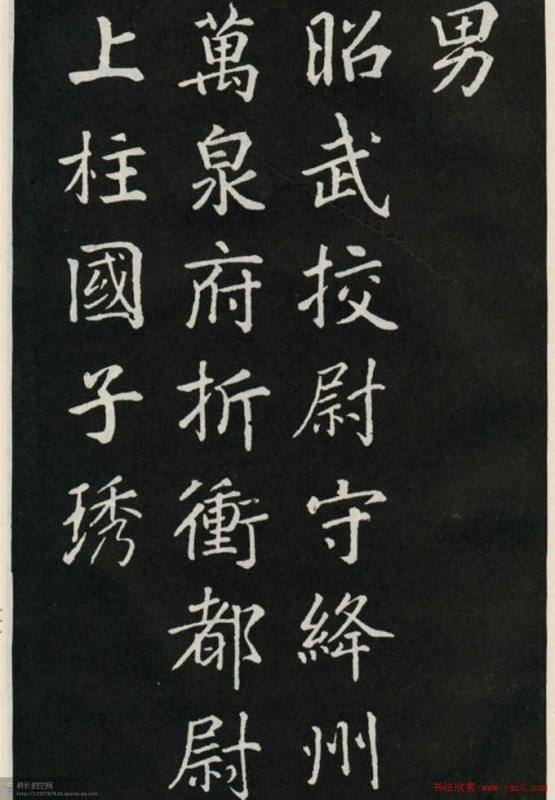 男
昭武挍尉守絳州
萬泉府折衝都尉
上柱國子琇
科长的空间
书法欣赏 www.yac8.com